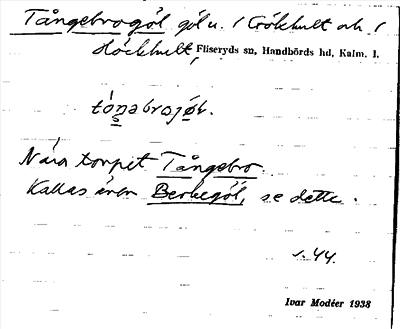 Tångebrogöl göl u. / Crökhult och /
Höckhult, Fliseryds sn, Handbörds hd, Kalm. l.
tóŋabrojö̀l.
Nära torpet Tångebro.
Kallas även Berkegöl, se dette.
s. 44.
Ivar Modéer 1938